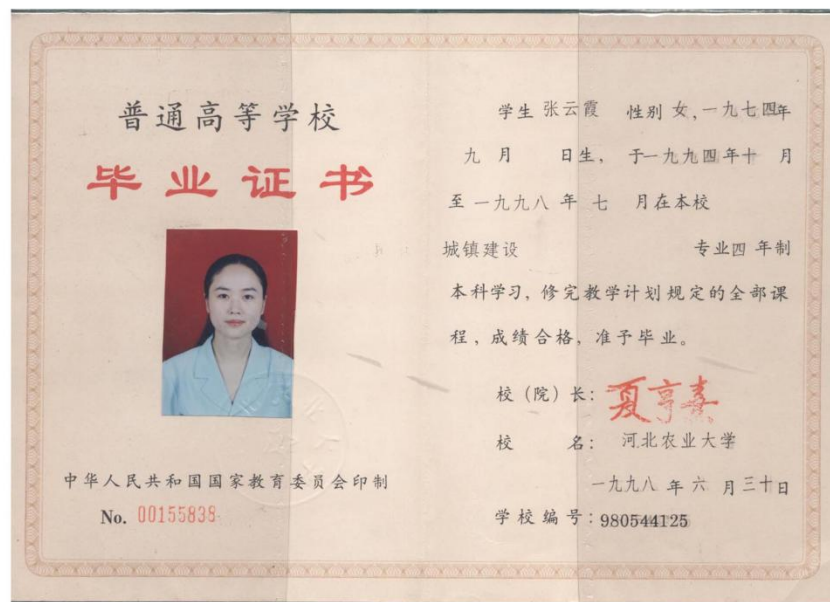 普通高等学校
毕业证书
中华人民共和国国家教育委员会印制
No. 00155838
学生 张云霞 性别 女，一九七四年
九 月 日生，于一九九四年十 月
至 一九九八 年 七 月在本校
城镇建设 专业四 年制
本科学习，修完教学计划规定的全部课
程，成绩合格，准予毕业。
校（院）长：夏亨熹
校 名：河北农业大学
一九九八 年 六 月 三十日
学校编号：980544125